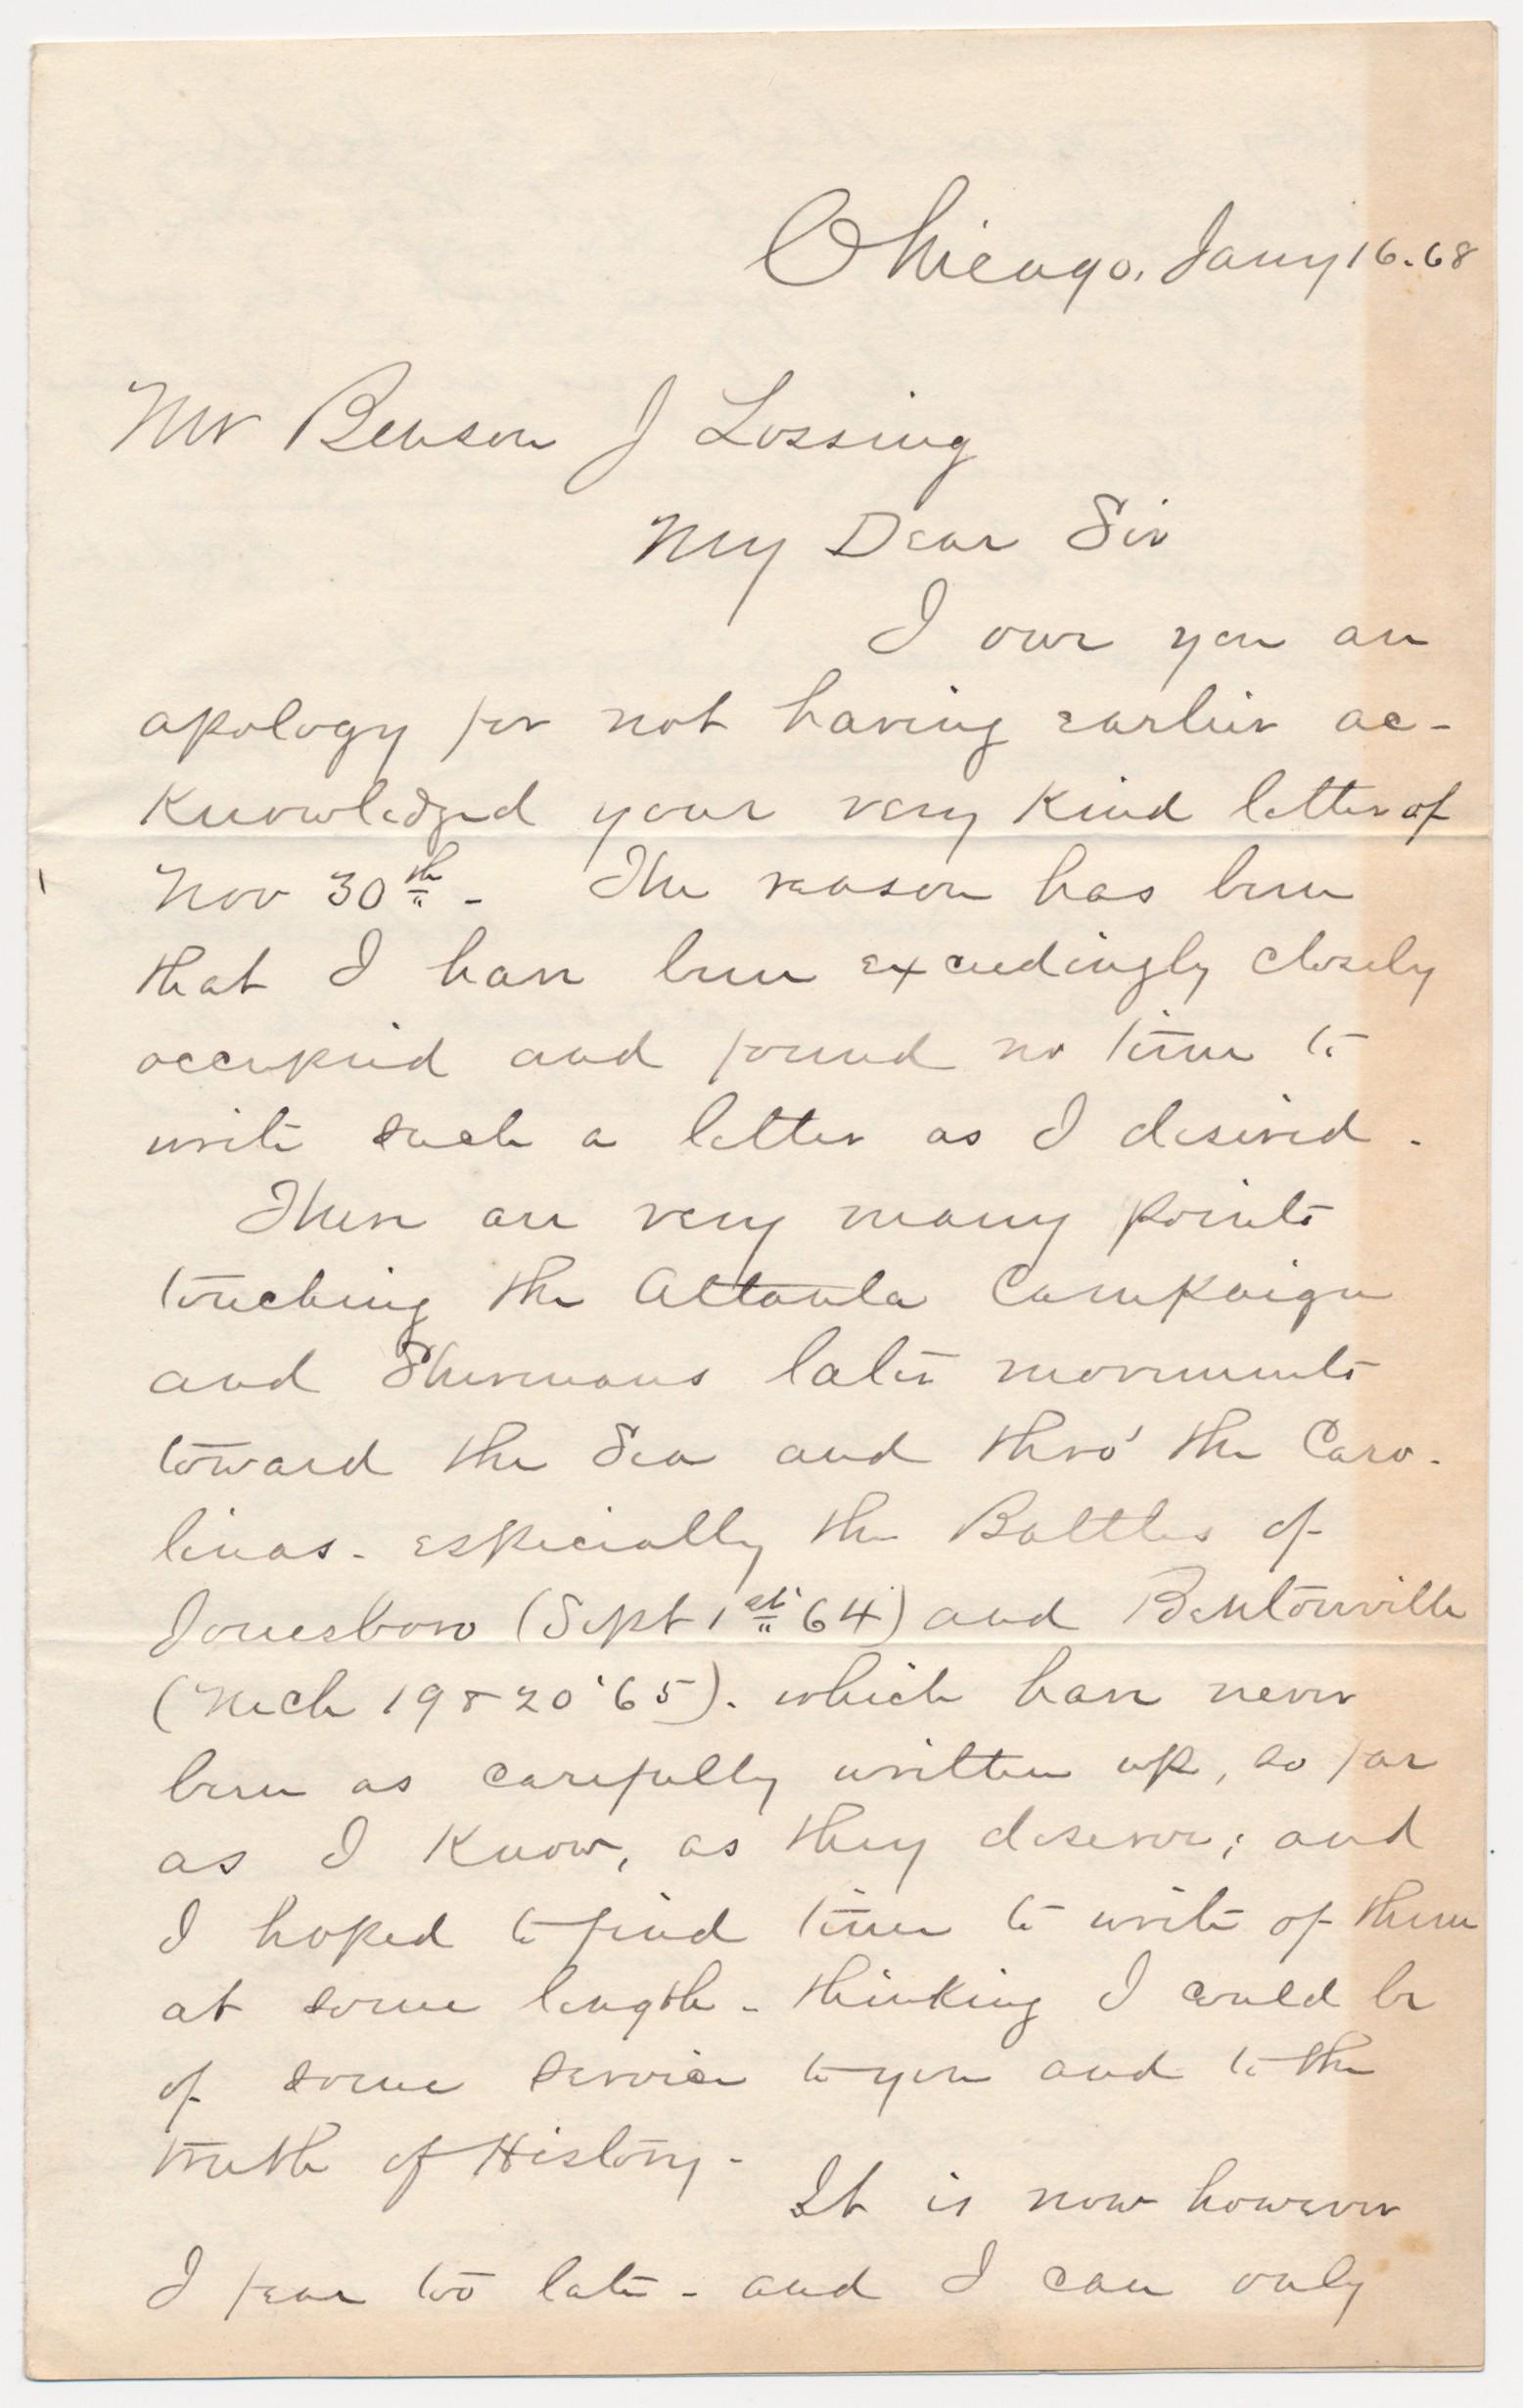 Chicago, Jany 16. 68
Mr Benson J Lossing
My Dear Sir
I owe you an
apology for not having earlier ac-
knowledged your very kind letter of
Nov 30th - The reason has been
that I have been exceedingly closely
occupied and found no time to
write such a letter as I desired.
There are very many points
touching the Atlanta Campaign
and Shermans later movements
toward the Sea and thro' the Caro-
linas - especially the Battles of
Jonesboro (Sept 1st 64) and Bentonville
(Mch 19 & 20 '65). which have never
been as carefully written up, so far
as I know, as they deserve; and
I hoped to find time to write of them
at some length - thinking I could be
of some service to you and to the
truth of History -
It is now however
I fear too late - and I can only